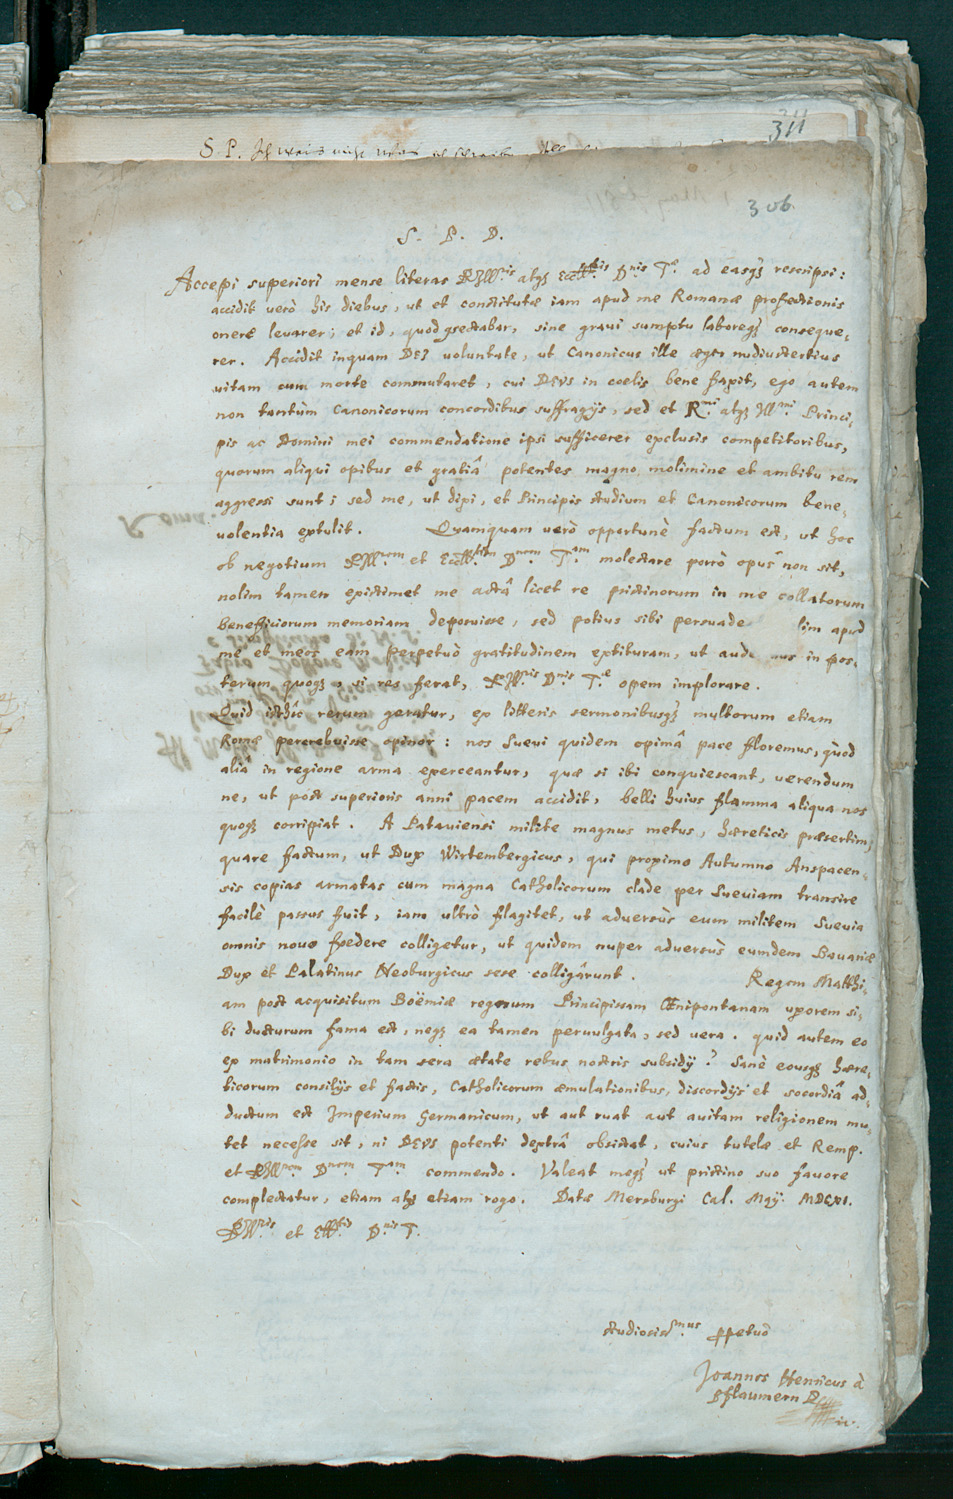 311
S. P. Ich weis nicht
306
S. P. D.
Accepi superiori mense literas Rss.mae atq3 Exc.mae D.nis T.ae ad easq3 rescripsi:
accidit verò his diebus, ut et constitutae iam apud me Romanae profectionis
onere levarer; et id, quod sectabar, sine gravi sumptu laboreq3 conseque-
rer. Accidit inquam DEI voluntate, ut Canonicus ille aeger nudiustertius
vitam cum morte commutaret, cui DEVS in coelis bene faxit, ego autem
non tantùm Canonicorum concordibus suffragijs, sed et R.mi atq3 Ill.mi Princi-
pis ac Domini mei commendatione ipsi sufficerer exclusis competitoribus,
quorum aliqui opibus et gratiâ potentes magno molimine et ambitu rem
aggressi sunt; sed me, ut dixi, et Principis studium et Canonicorum bene-
volentia extulit. Quamquam verò opportunè factum est, ut hoc
ob negotium et D.nem T.am molestare porrò opus non sit,
nolim tamen existimet me actâ licet re pristinorum in me collatorum
beneficiorum memoriam deposuisse, sed potius sibi persuade lim apud
me et meos eam perpetuò gratitudinem extituram, ut aude mus in pos-
terum quoq3, si res ferat, D.nis T.ae opem implorare.
Quid isthîc rerum geratur, ex litteris sermonibusq3 multorum etiam
Romae percrebuisse opinor: nos Suevi quidem opimâ pace floremus, quod
aliâ in regione arma exerceantur, quae si ibi conquiescant, verendum
ne, ut post superioris anni pacem accidit, belli huius flamma aliqua nos
quoq3 corripiat. A Pataviensi milite magnus metus, haereticis praesertim,
quare factum, ut Dux Wirtembergicus, qui proximo Autumno Anspacen-
sis copias armatas cum magna Catholicorum clade per Sueviam transire
facilè passus fuit, iam ultrò flagitet, ut adversùs eum militem Suevia
omnis novo foedere colligetur, ut quidem nuper adversùs eumdem Bavariae
Dux et Palatinus Neoburgicus sese colligârunt. Regem Matthi-
am post acquisitum Boëmiae regnum Principissam Œnipontanam uxorem si-
bi ducturum fama est, neq3 ea tamen pervulgata, sed vera. quid autem eo
ex matrimonio in tam sera aetate rebus nostris subsidij? Sanè eousq3 haere-
ticorum consilijs et factis, Catholicorum aemulationibus, discordijs et socordiâ ad-
ductum est Imperium Germanicum, ut aut ruat aut avitam religionem mu-
tet necesse sit, ni DEVS potenti dextrâ obsistat, cuius tutelae et Remp.
et D.nem T.am commendo. Valeat meq3 ut pristino suo favore
complectatur, etiam atq3 etiam rogo. Datae Mersburgi Cal. Maij. MDCXI.
et D.nis T.
studiosiss.mus perpetuò
Joannes Henricus à
Pflaumern